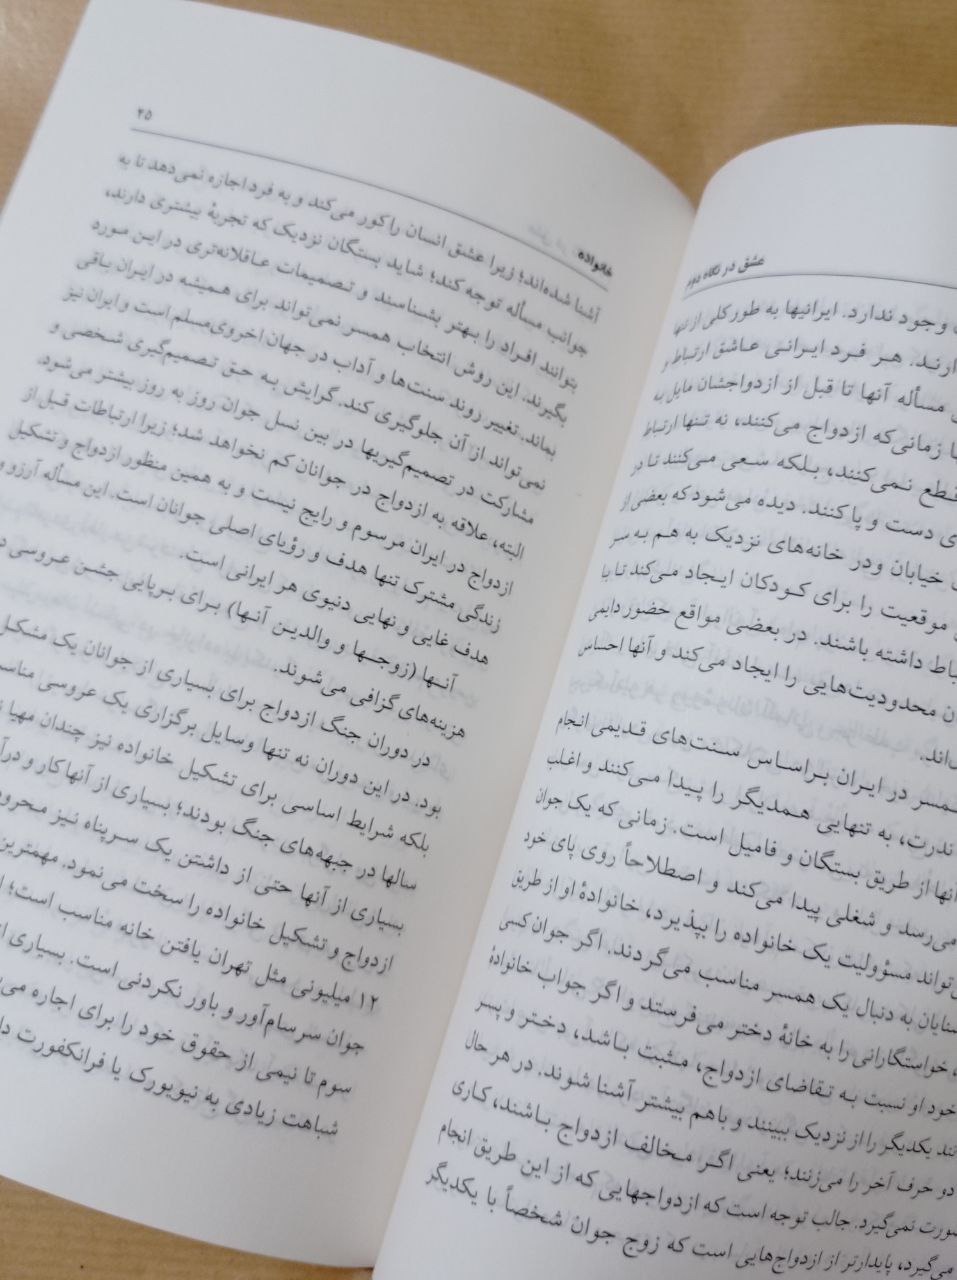 عشق در نگاه دوم
وجود ندارد. ایرانیها به طور کلی از تنها
ارند. هر فرد ایرانی عاشق ارتباط و
مسأله آنها تا قبل از ازدواجشان مایل به
زمانی‌که ازدواج می‌کنند، نه تنها ارتباط
قطع نمی‌کنند، بلکه سعی می‌کنند تا در
دست و پا کنند. دیده می‌شود که بعضی از
خیابان ودر خانه‌های نزدیک به هم به سر
موقعیت را برای کودکان ایجاد می‌کند تا با
باط داشته باشند. در بعضی مواقع حضور دایمی
محدودیت‌هایی را ایجاد می‌کند و آنها احساس
‌اند.
مسر در ایران براساس سنت‌های قدیمی انجام
ندرت، به تنهایی همدیگر را پیدا می‌کنند و اغلب
آنها از طریق بستگان و فامیل است. زمانی که یک جوان
می‌رسد و شغلی پیدا می‌کند و اصطلاحاً روی پای خود
تواند مسؤولیت یک خانواده را بپذیرد، خانوادهٔ او از طریق
شنایان به دنبال یک همسر مناسب می‌گردند. اگر جوان کسی
خواستگارانی را به خانهٔ دختر می‌فرستد و اگر جواب خانوادهٔ
خود او نسبت به تقاضای ازدواج، مثبت باشد، دختر و پسر
نند یکدیگر را از نزدیک ببینند و باهم بیشتر آشنا شوند. در هر حال
دو حرف آخر را می‌زنند؛ یعنی اگر مخالف ازدواج باشند، کاری
صورت نمی‌گیرد. جالب توجه است که ازدواجهایی که از این طریق انجام
می‌گیرد، پایدارتر از ازدواج‌هایی است که زوج جوان شخصاً با یکدیگر
خانواده ۴۵
آشنا شده‌اند؛ زیرا عشق انسان را کور می‌کند و به فرد اجازه نمی‌دهد تا به
جوانب مسأله توجه کند؛ شاید بستگان نزدیک که تجربهٔ بیشتری دارند،
بتوانند افراد را بهتر بشناسند و تصمیمات عاقلانه‌تری در این مورد
بگیرند. این روش انتخاب همسر نمی‌تواند برای همیشه در ایران باقی
بماند. تغییر روند سنت‌ها و آداب در جهان اخروی‌مسلم است و ایران نیز
نمی‌تواند از آن جلوگیری کند. گرایش به حق تصمیم‌گیری شخصی و
مشارکت در تصمیم‌گیریها در بین نسل جوان روز به روز بیشتر می‌شود.
البته، علاقه به ازدواج در جوانان کم نخواهد شد؛ زیرا ارتباطات قبل از
ازدواج در ایران مرسوم و رایج نیست و به همین منظور ازدواج و تشکیل
زندگی مشترک تنها هدف و رؤیای اصلی جوانان است. این مسأله آرزو و
هدف غایی و نهایی دنیوی هر ایرانی است.
آنها (زوجها و والدین آنها) برای برپایی جشن عروسی
هزینه‌های گزافی می‌شوند.
در دوران جنگ ازدواج برای بسیاری از جوانان یک مشکل
بود. در این دوران نه تنها وسایل برگزاری یک عروسی
بلکه شرایط اساسی برای تشکیل خانواده نیز چندان مهیا
سالها در جبهه‌های جنگ بودند؛ بسیاری از آنها کار و
بسیاری از آنها حتی از داشتن یک سرپناه نیز
ازدواج و تشکیل خانواده را سخت می‌نمود. مهمترین
۱۲ میلیونی مثل تهران یافتن خانه مناسب است؛
جوان سرسام‌آور و باور نکردنی است. بسیاری
سوم تا نیمی از حقوق خود را برای اجاره
شباهت زیادی به نیویورک یا فرانکفورت